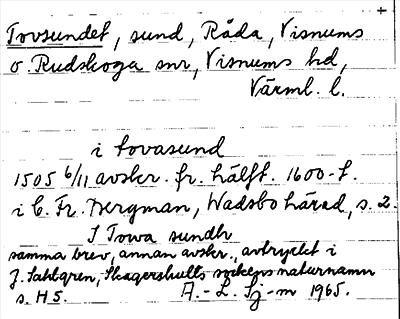 +
Tovsundet, sund, Råda, Visnums
o. Rudskoga snr, Visnums hd,
Värml. l.
i tovasund
1505 6/11 avskr. fr. hälft. 1600-t.
i C. Fr. Bergman, Wadsbo härad, s. 2.
I Towa sundh
samma brev, annan avskr., avtryckt i
J. Sahlgren, Skagershults sockens naturnamn
s. H5.
A.-L. Sj-m 1965.